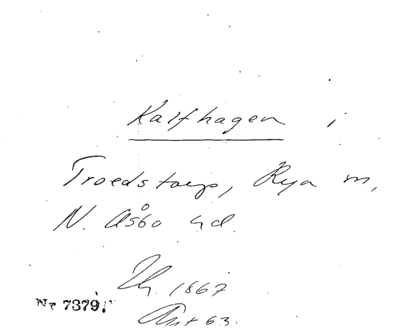 Kalfhagen i
Troedstorp, Rya m,
N. Åsbo hd.
1867
Nr 7379.
63.